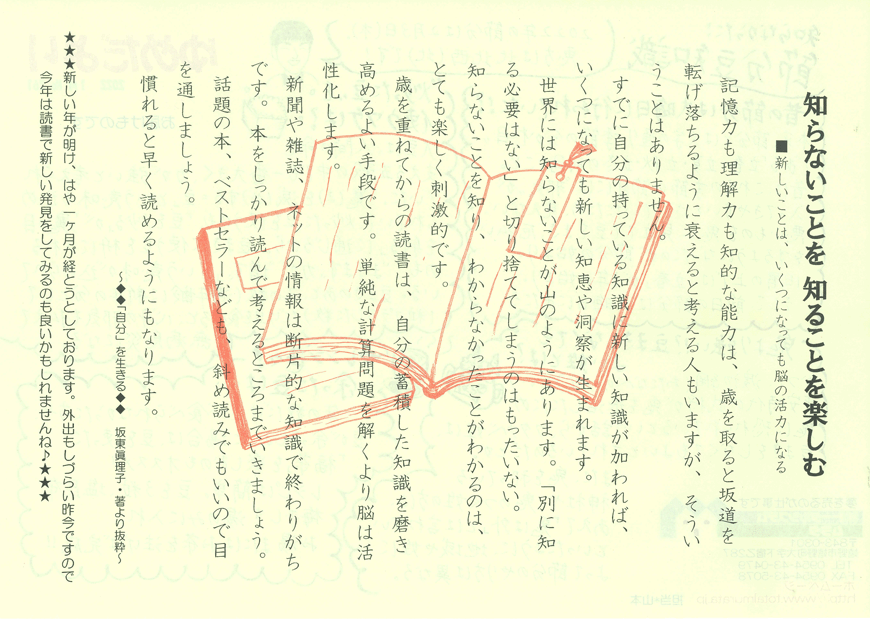 知らないことを 知ることを楽しむ
■新しいことは、いくつになっても脳の活力になる
記憶力も理解力も知的な能力は、歳を取ると坂道を
転げ落ちるように衰えると考える人もいますが、そうい
うことはありません。
すでに自分の持っている知識に新しい知識が加われば、
いくつになっても新しい知恵や洞察が生まれます。
世界には知らないことが山のようにあります。「別に知
る必要はない」と切り捨ててしまうのはもったいない。
知らないことを知り、わからなかったことがわかるのは、
とても楽しく刺激的です。
歳を重ねてからの読書は、自分の蓄積した知識を磨き
高めるよい手段です。単純な計算問題を解くより脳は活
性化します。
新聞や雑誌、ネットの情報は断片的な知識で終わりがち
です。本をしっかり読んで考えるところまでいきましょう。
話題の本、ベストセラーなども、斜め読みでもいいので目
を通しましょう。
慣れると早く読めるようにもなります。
～◆◆「自分」を生きる◆◆ 坂東眞理子・著より抜粋～
★★★新しい年が明け、はや一ヶ月が経とうとしております。外出もしづらい昨今ですので
今年は読書で新しい発見をしてみるのも良いかもしれませんね♪★★★